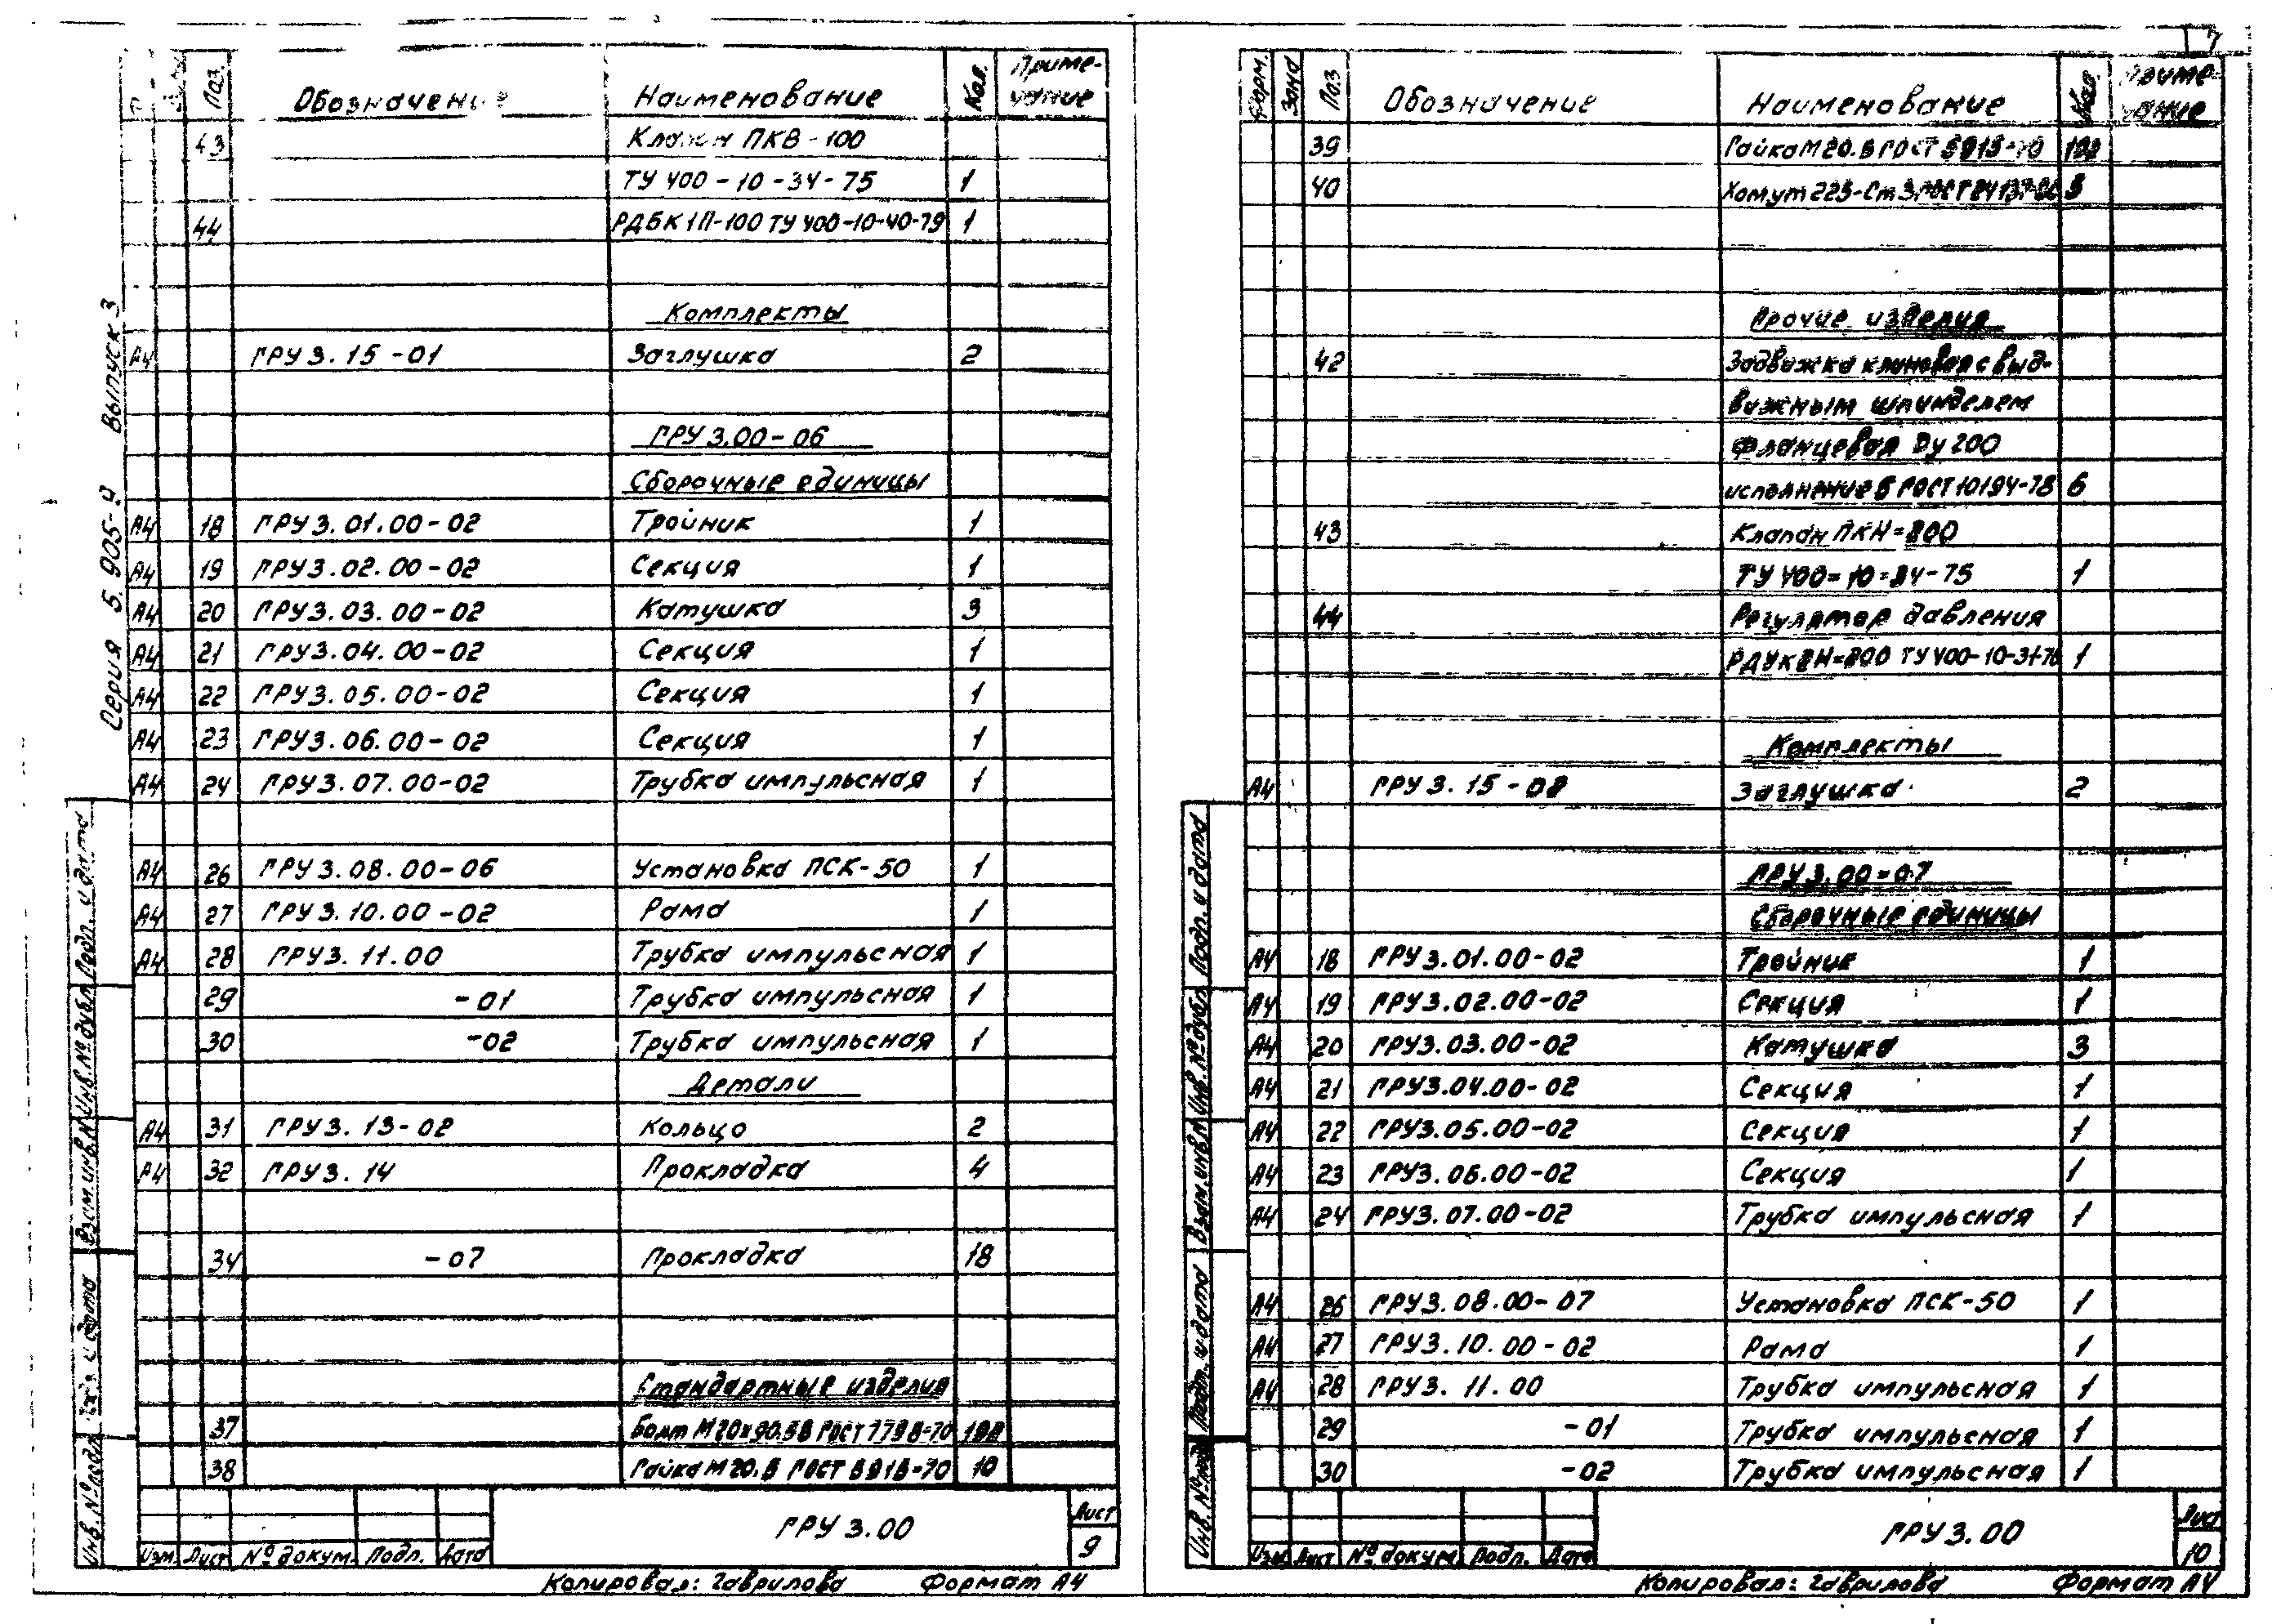 7
Серия 5.905-  Выпуск 3
Поз. Обозначение Наименование Кол. Приме-
чание
43 Клапан ПКВ-100
ТУ 400-10-34-75 1
44 РДБК 1П-100 ТУ 400-10-40-79 1
Комплекты
А4 ГРУ 3.15-01 Заглушка 2
ГРУ 3.00-06
Сборочные единицы
А4 18 ГРУ 3.01.00-02 Тройник 1
А4 19 ГРУ 3.02.00-02 Секция 1
А4 20 ГРУ 3.03.00-02 Катушка 3
А4 21 ГРУ 3.04.00-02 Секция 1
А4 22 ГРУ 3.05.00-02 Секция 1
А4 23 ГРУ 3.06.00-02 Секция 1
А4 24 ГРУ 3.07.00-02 Трубка импульсная 1
А4 26 ГРУ 3.08.00-06 Установка ПСК-50 1
А4 27 ГРУ 3.10.00-02 Рама 1
А4 28 ГРУ 3.11.00 Трубка импульсная 1
29 -01 Трубка импульсная 1
30 -02 Трубка импульсная 1
Детали
А4 31 ГРУ 3.13-02 Кольцо 2
А4 32 ГРУ 3.14 Прокладка 4
34 -07 Прокладка 18
Стандартные изделия
37 Болт М20х90.58 ГОСТ 7798-70
38 Гайка М20.5 ГОСТ 5915-70 10
Инв. № подл. Подп. и дата Взам. инв. № Инв. № дубл. Подп. и дата
Изм. Лист № докум. Подп. Дата
ГРУ 3.00
Лист
9
Копировал: Гаврилова Формат А4
Форм. Зона Поз. Обозначение Наименование Кол. Приме-
чание
39 Гайка М20.5 ГОСТ 5915-70
40 Хомут 223-Ст3 ГОСТ 24137-80 5
Прочие изделия
42 Задвижка клиновая с выд-
вижным шпинделем
фланцевая Ду 200
исполнение Б ГОСТ 10194-78 6
43 Клапан ПКН-200
ТУ 400-10-34-75 1
44 Регулятор давления
РДУК2Н-200 ТУ 400-10-31-76 1
Комплекты
А4 ГРУ 3.15-02 Заглушка 2
ГРУ 3.00-07
Сборочные единицы
А4 18 ГРУ 3.01.00-02 Тройник 1
А4 19 ГРУ 3.02.00-02 Секция 1
А4 20 ГРУ 3.03.00-02 Катушка 3
А4 21 ГРУ 3.04.00-02 Секция 1
А4 22 ГРУ 3.05.00-02 Секция 1
А4 23 ГРУ 3.06.00-02 Секция 1
А4 24 ГРУ 3.07.00-02 Трубка импульсная 1
А4 26 ГРУ 3.08.00-07 Установка ПСК-50 1
А4 27 ГРУ 3.10.00-02 Рама 1
А4 28 ГРУ 3.11.00 Трубка импульсная 1
29 -01 Трубка импульсная 1
30 -02 Трубка импульсная 1
Инв. № подл. Подп. и дата Взам. инв. № Инв. № дубл. Подп. и дата
Изм. Лист № докум. Подп. Дата
ГРУ 3.00
Лист
10
Копировал: Гаврилова Формат А4